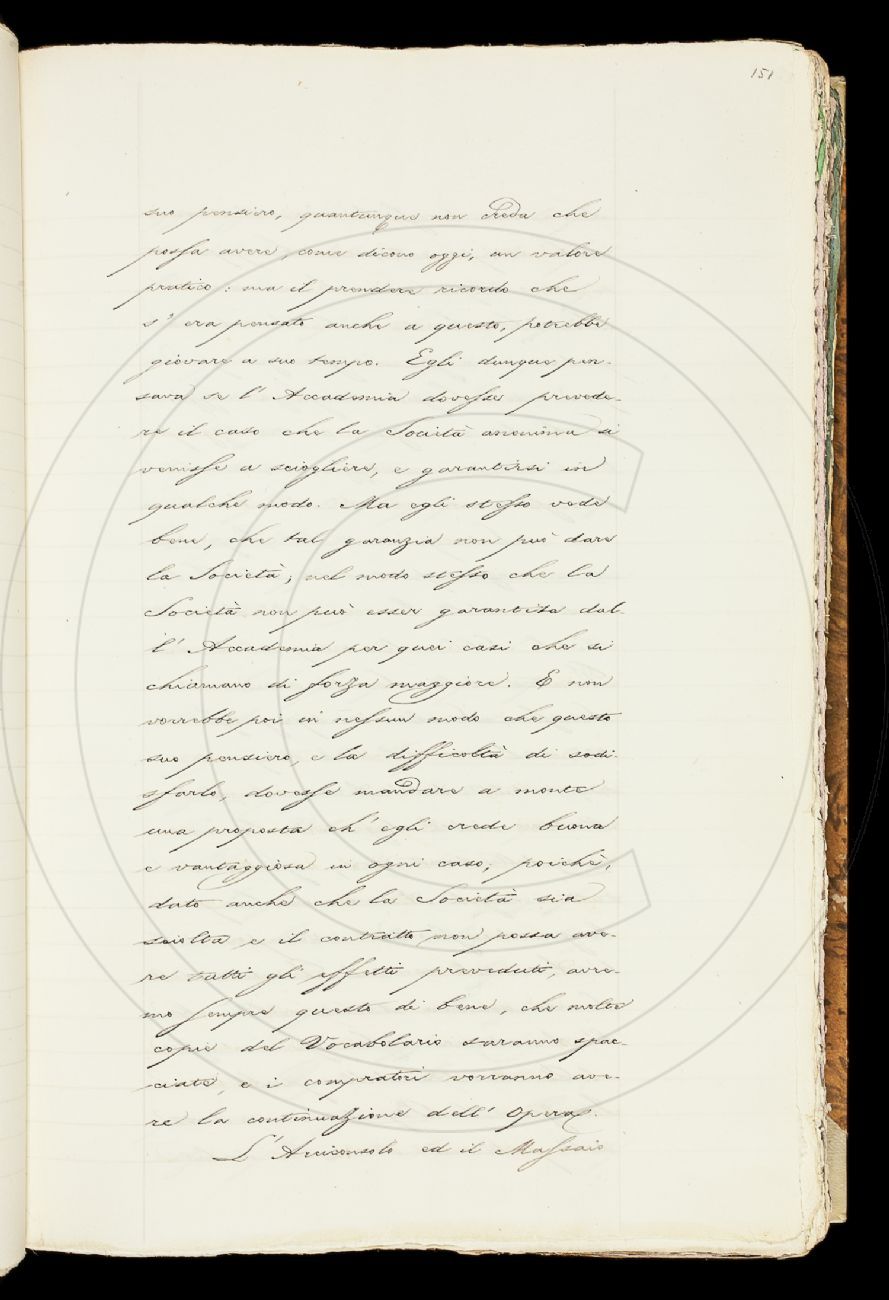 151
suo pensiero, quantunque non creda che
possa avere, come dicono oggi, un valore
pratico: ma il prender ricordo che
s' era pensato anche a questo, potrebbe
giovare a suo tempo. Egli dunque pen-
sava se l' Accademia dovesse provede-
re il caso che la Società anonima si
venisse a sciogliere, e garantirsi in
qualche modo. Ma egli stesso vede
bene, che tal garanzia non può dare
la Società; nel modo stesso che la
Società non può esser garantita dal-
l' Accademia per quei casi che si
chiamano di forza maggiore. E non
vorrebbe poi in nessun modo che questo
suo pensiero, e la difficoltà di sodi-
sfarlo, dovesse mandare a monte
una proposta ch' egli crede buona
e vantaggiosa in ogni caso; poichè,
dato anche che la Società sia
sciolta e il contratto non possa ave-
re tutti gli effetti preveduti, avre-
mo sempre questo di bene, che molte
copie del Vocabolario saranno spac-
ciate, e i compratori vorranno ave-
re la continuazione dell' Opera.
L' Arciconsolo ed il Massaio